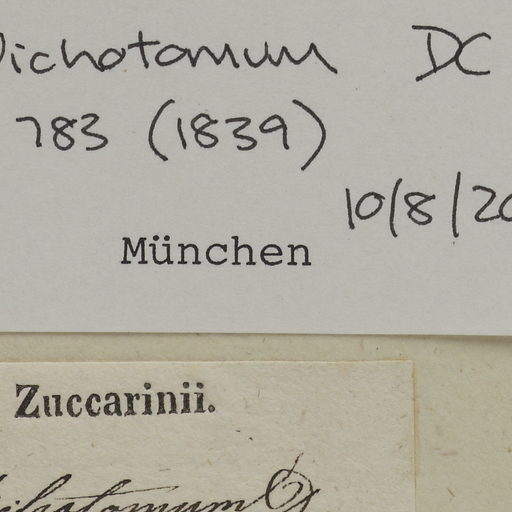 Dichotomum DC
783 (1839)
10/8/20
München
Zuccarinii.
dichotomum